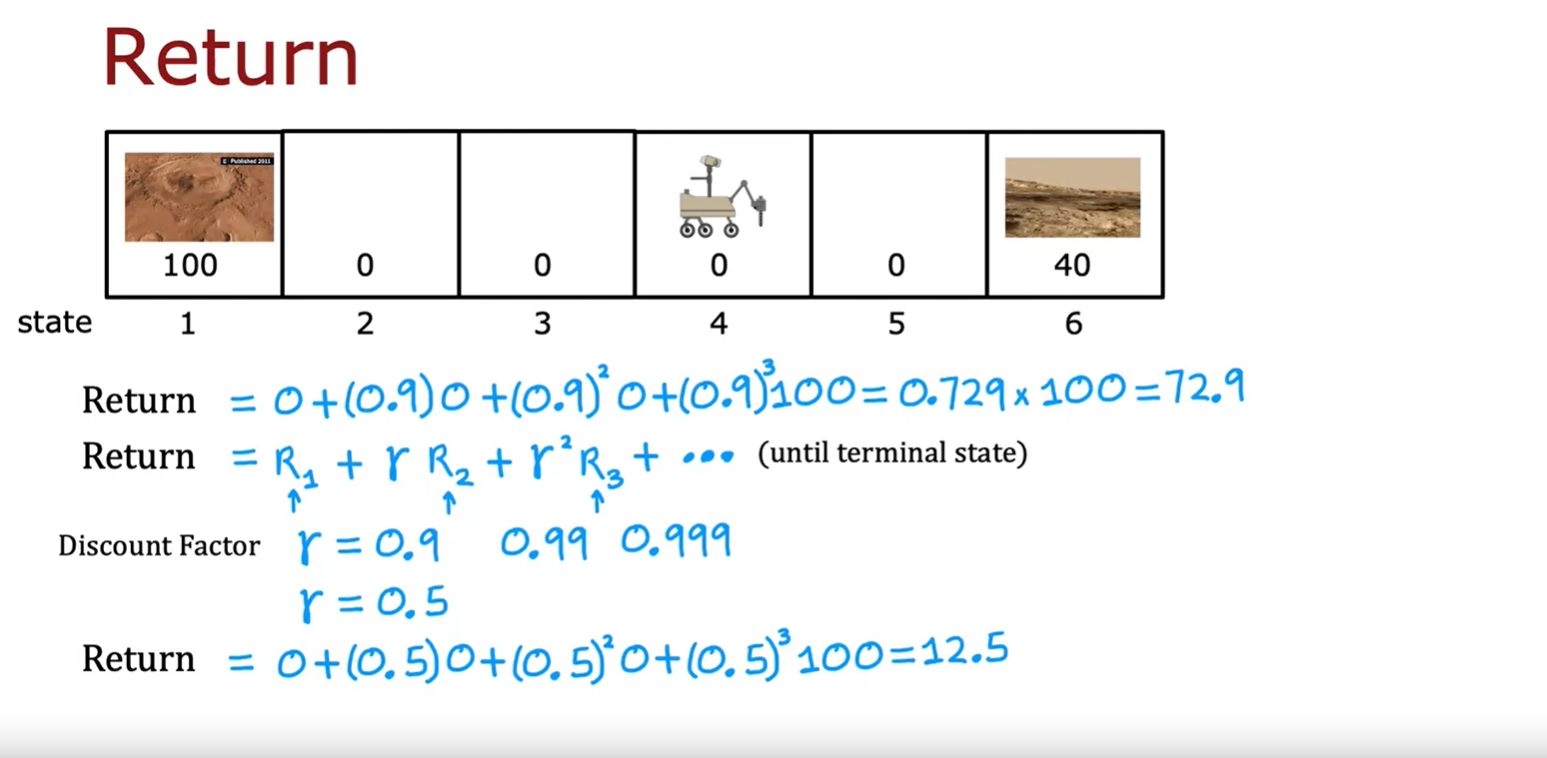 Return
© Published 2011
100 0 0 0 0 40
state 1 2 3 4 5 6
Return = 0+(0.9)0+(0.9)²0+(0.9)³100=0.729×100=72.9
Return = R₁ + γ R₂ + γ²R₃ + ••• (until terminal state)
Discount Factor γ = 0.9 0.99 0.999
γ = 0.5
Return = 0+(0.5)0+(0.5)²0+(0.5)³100=12.5